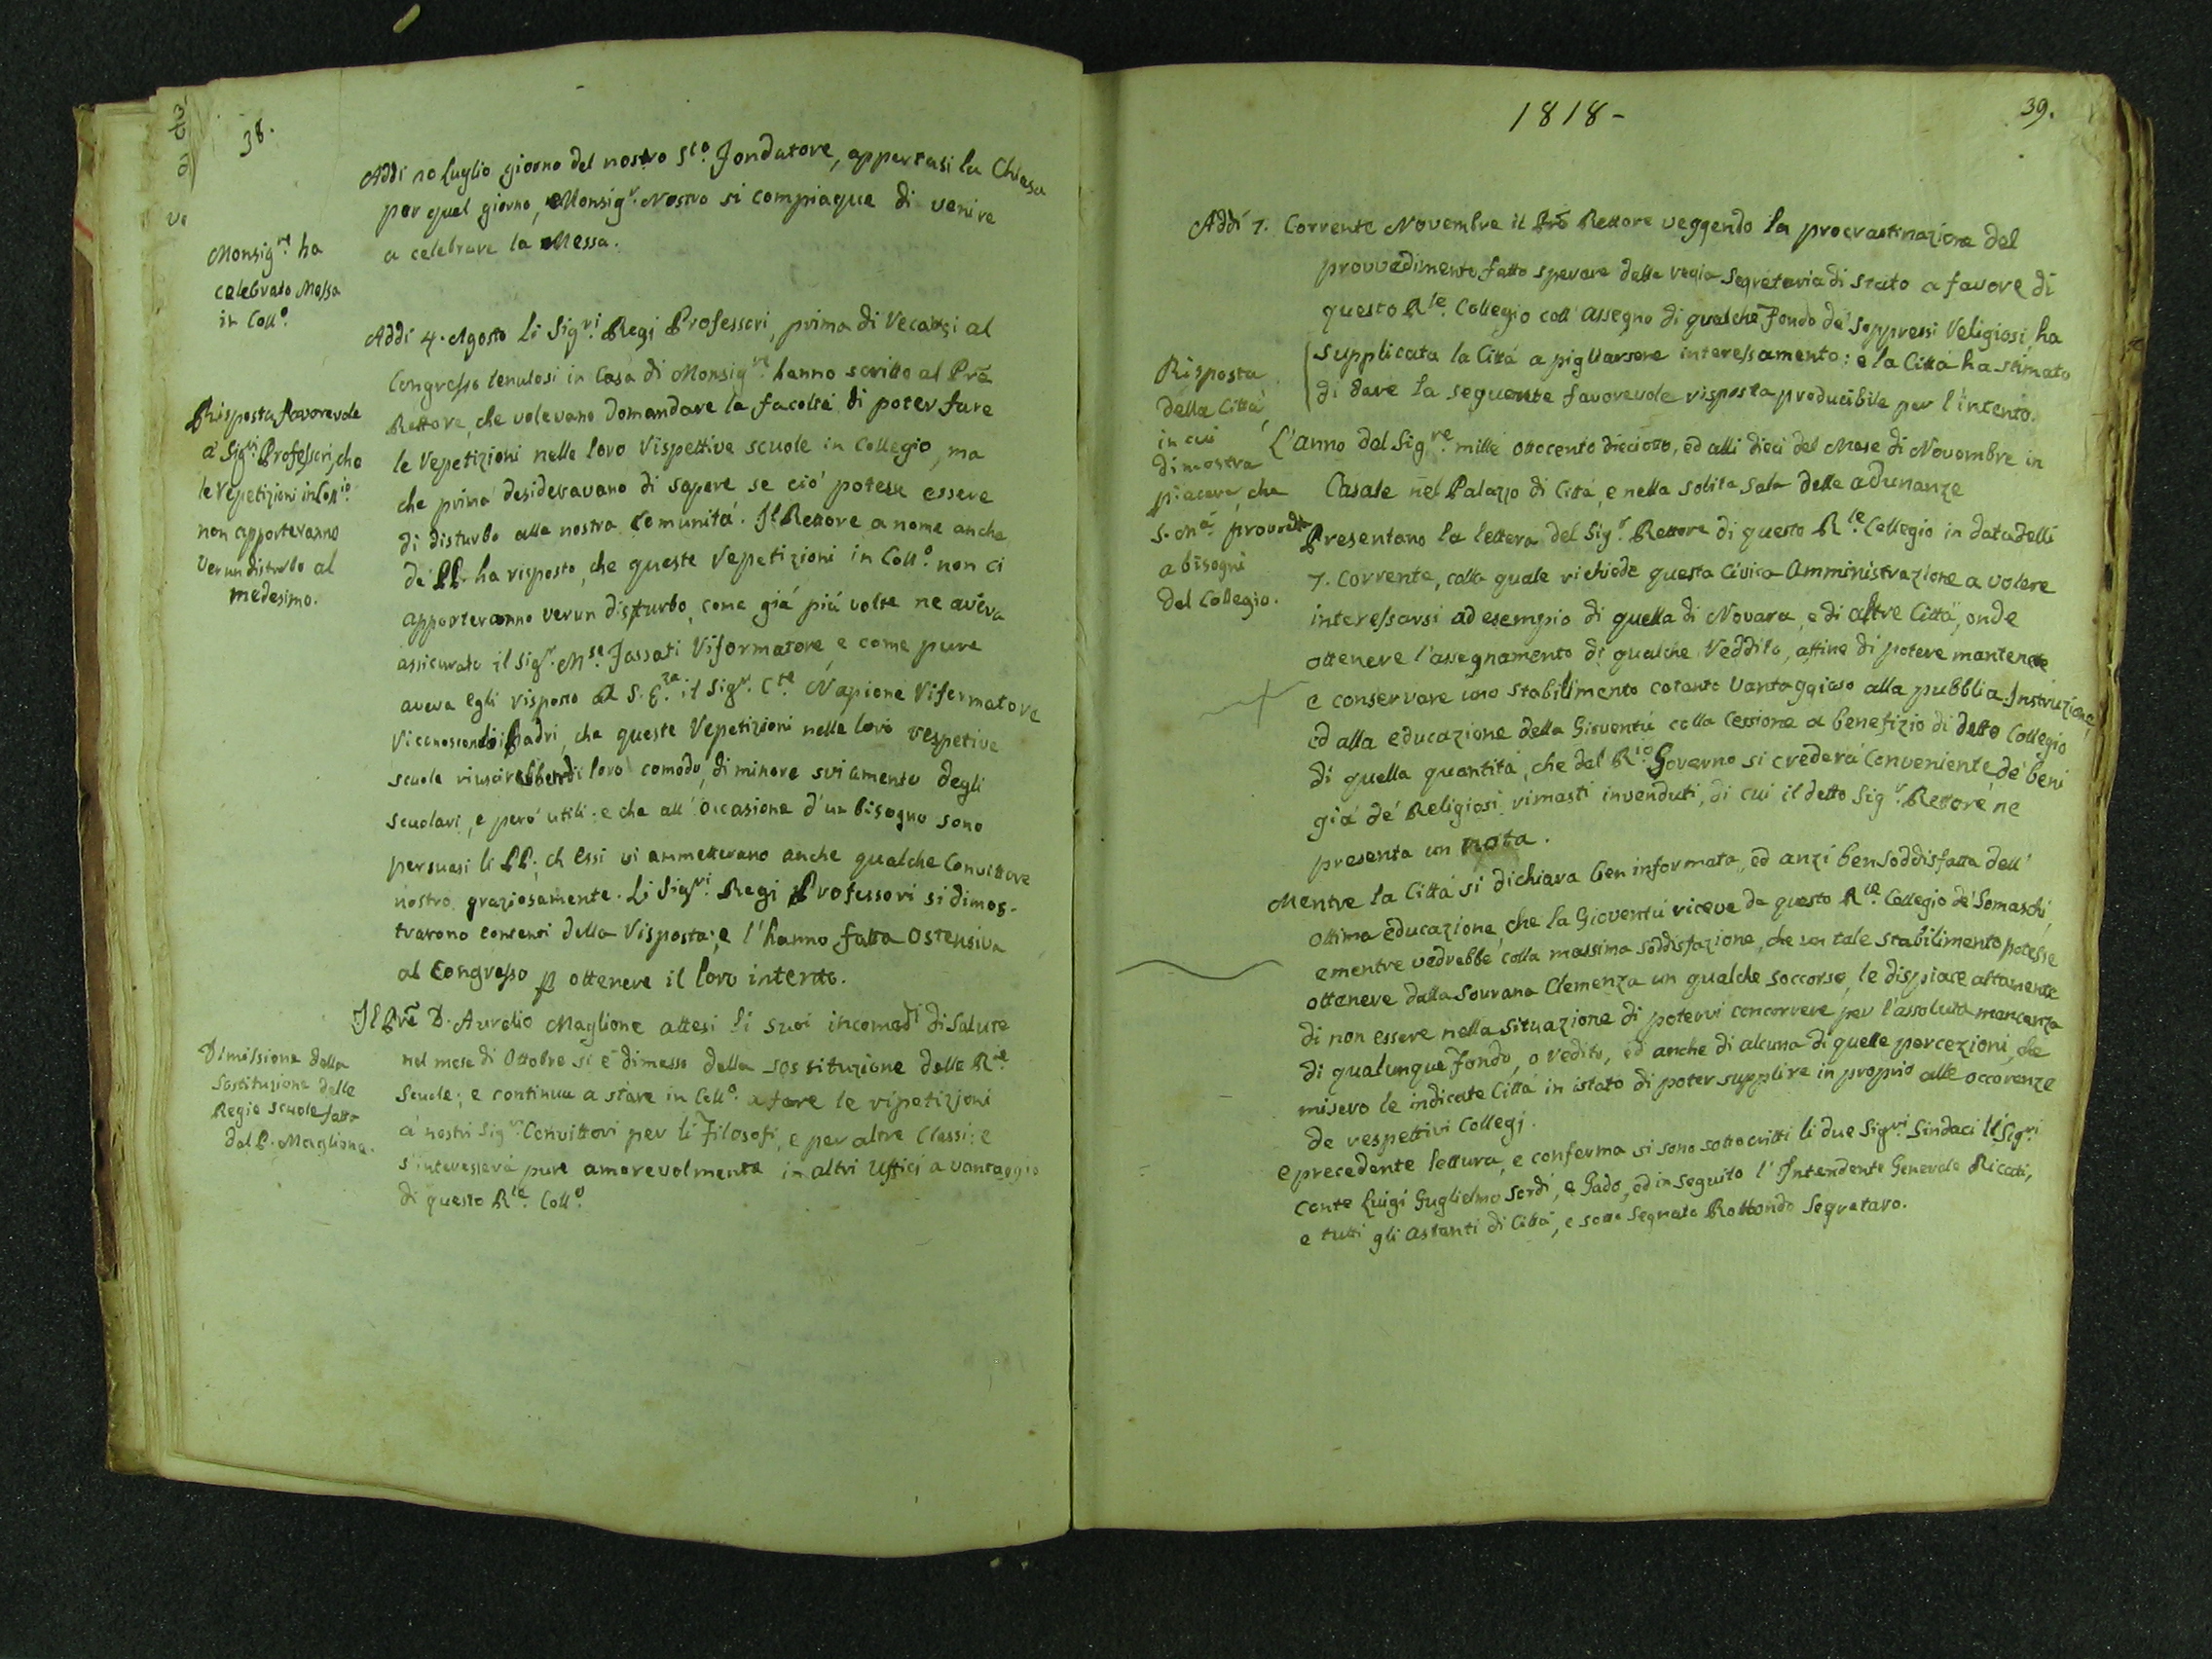 38.
Addi 20 Luglio giorno del nostro Sto. Fondatore, appertasi la Chiesa
per quel giorno, Monsigr. Nostro si compiaque di venire
a celebrare la Messa.
Monsigre. ha
celebrato Messa
in Collo.
Addi 4. Agosto Li Sigri. Regi Professori, prima di recarsi al
Congresso tenutosi in Casa di Monsigre. hanno scritto al Pre
Rettore, che volevano domandare la facoltà di poter fare
le repetizioni nelle loro rispettive scuole in Collegio, ma
che prima desideravano di sapere se ciò potesse essere
di disturbo alla nostra Comunità. Il Rettore a nome anche
de' PP. ha risposto, che queste repetizioni in Collo. non ci
apporteranno verun disturbo, come già più volte ne aveva
assicurato il Sigr. Mse. Fassati Riformatore, e come pure
aveva egli risposto a S. E.za il Sigr. Cte. Napione Riformatore
Riconoscendo i Padri, che queste repetizioni nelle loro respetive
scuole riuscirebbero di loro comodo, di minore sviamento degli
scuolari, e però utili: e che all' occasione d'un bisogno sono
persuasi li PP. ch' essi vi ammetterano anche qualche Convittore
nostro graziosamente. Li Sigri. Regi Professori si dimos-
trarono contenti della Risposta, e l'hanno fatta ostensiva
al Congresso p ottenere il loro intento.
Risposta favorevole
a' Sigri. Professori, che
le repetizioni in Collio.
non apporteranno
verun disturbo al
medesimo.
Il Pre D. Aurelio Maglione attesi li suoi incomodi di Salute
nel mese di Ottobre si è dimesso della sostituzione delle Rie.
Scuole; e continua a stare in Collo. a fare le ripetizioni
a' nostri Sigri. Convittori per li Filosofi, e per altre Classi: e
s'interesserà pure amorevolmente in altri Uffici a vantaggio
di questo Rle. Collo.
Dimissione della
Sostituzione delle
Regie scuole fatta
dal P. Maglione.
1818-
39.
Addi 7. Corrente Novembre il Pre Rettore veggendo la procrastinazione del
provvedimento fatto sperare dalla regia Segretaria di Stato a favore di
questo Rle. Collegio coll' assegno di qualche Fondo de' soppressi Religiosi, ha
supplicata la Città a pigliarsene interessamento: e la Città ha stimato
di dare la seguente favorevole risposta producibile per l'intento.
Risposta
della Città
in cui
dimostra
piacere che
S. Ma. provveda
a bisogni
del Collegio.
L'anno del Sigre. mille ottocento dieciotto, ed alli dieci del Mese di Novembre in
Casale nel Palazzo di Città, e nella solita Sala delle adunanze
Presentano la lettera del Sigr. Rettore di questo Rle. Collegio in data delli
7. corrente, colla quale richiede questa Civica Amministrazione a volere
interessarsi ad esempio di quella di Novara, e di altre Città, onde
ottenere l'assegnamento di qualche Reddito, affine di potere mantenere
e conservare uno stabilimento cotanto vantaggioso alla pubblia Instruzione,
ed alla educazione della Gioventù colla cessione a benefizio di detto Collegio
di quella quantità, che dal Rio. Governo si crederà conveniente de' beni
già de' Religiosi rimasti invenduti, di cui il detto Sigr. Rettore ne
presenta un nota.
Mentre la Città si dichiara ben informata, ed anzi ben soddisfatta dell'
ottima educazione, che la Gioventù riceve da questo Rle. Collegio de' Somaschi,
e mentre vedrebbe colla massima soddisfazione, che un tale stabilimento potesse
ottenere dalla Sovrana Clemenza un qualche soccorso, le dispiace altamente
di non essere nella situazione di potervi concorrere per l'assoluta mancanza
di qualunque Fondo, o redito, ed anche di alcuna di quelle percezioni, che
misero le indicate Città in istato di poter supplire in proprio alle occorenze
de respettivi Collegj.
E precedente lettura, e conferma si sono sottoscritti li due Sigri. Sindaci li Sigri.
Conte Luigi Guglielmo Sordi, e Gado, ed in seguito l'Intendente Generale Ricati,
e tutti gli astanti di Città, e sotto Segnato Rottondo Segretaro.